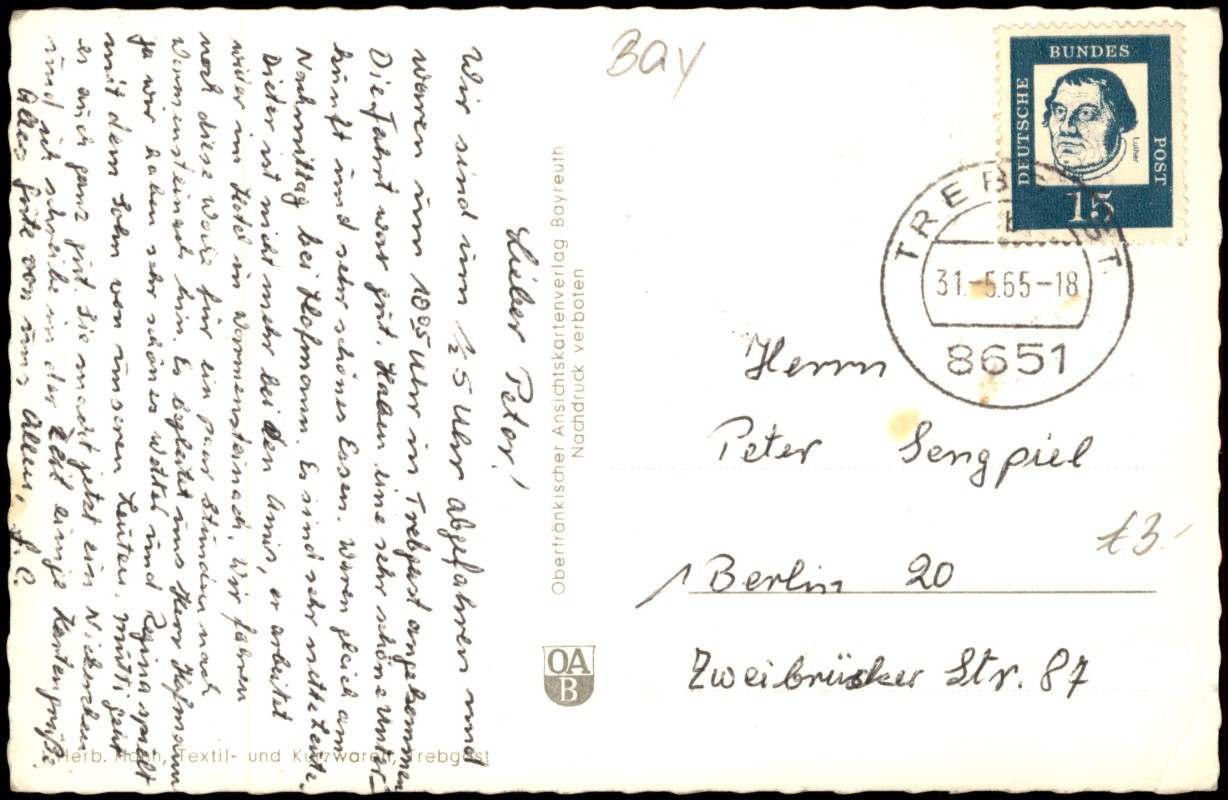 Lieber Peter!
Wir sind um ½ 5 Uhr abgefahren und
waren um 1005 Uhr in Trebgast angekommen
Die Fahrt war gut. Haben eine sehr schöne Unter-
kunft und sehr schönes Essen. Waren gleich am
Nachmittag bei Hofmann. Es sind sehr nette Leute.
Dieter ist nicht mehr bei den Amis, er arbeitet
wider im Hotel in Warmensteinach. Wir fahren
noch diese Woche für ein paar Stunden nach
Warmensteinach hin. Es begleitet uns Herr Hofmann
ja wir haben sehr schönes Wetter und Regina spielt
mit dem Sohn von unseren Leuten. Mutti geht
es auch ganz gut. Sie macht jetzt ein Nickerchen
und ich schreibe in der Zeit einige Kartengrüße.
Alles Gute von uns Allen,
Oberfränkischer Ansichtskartenverlag Bayreuth
Nachdruck verboten
OA
B
Herb. Textil- und Kurzwaren, Trebgast
Bay
DEUTSCHE
BUNDES
POST
Luther
15
TREBGAST
31.-5.65-18
8651
Herrn
Peter Sengpiel
1 Berlin 20
Zweibrücker Str. 87
£3.-